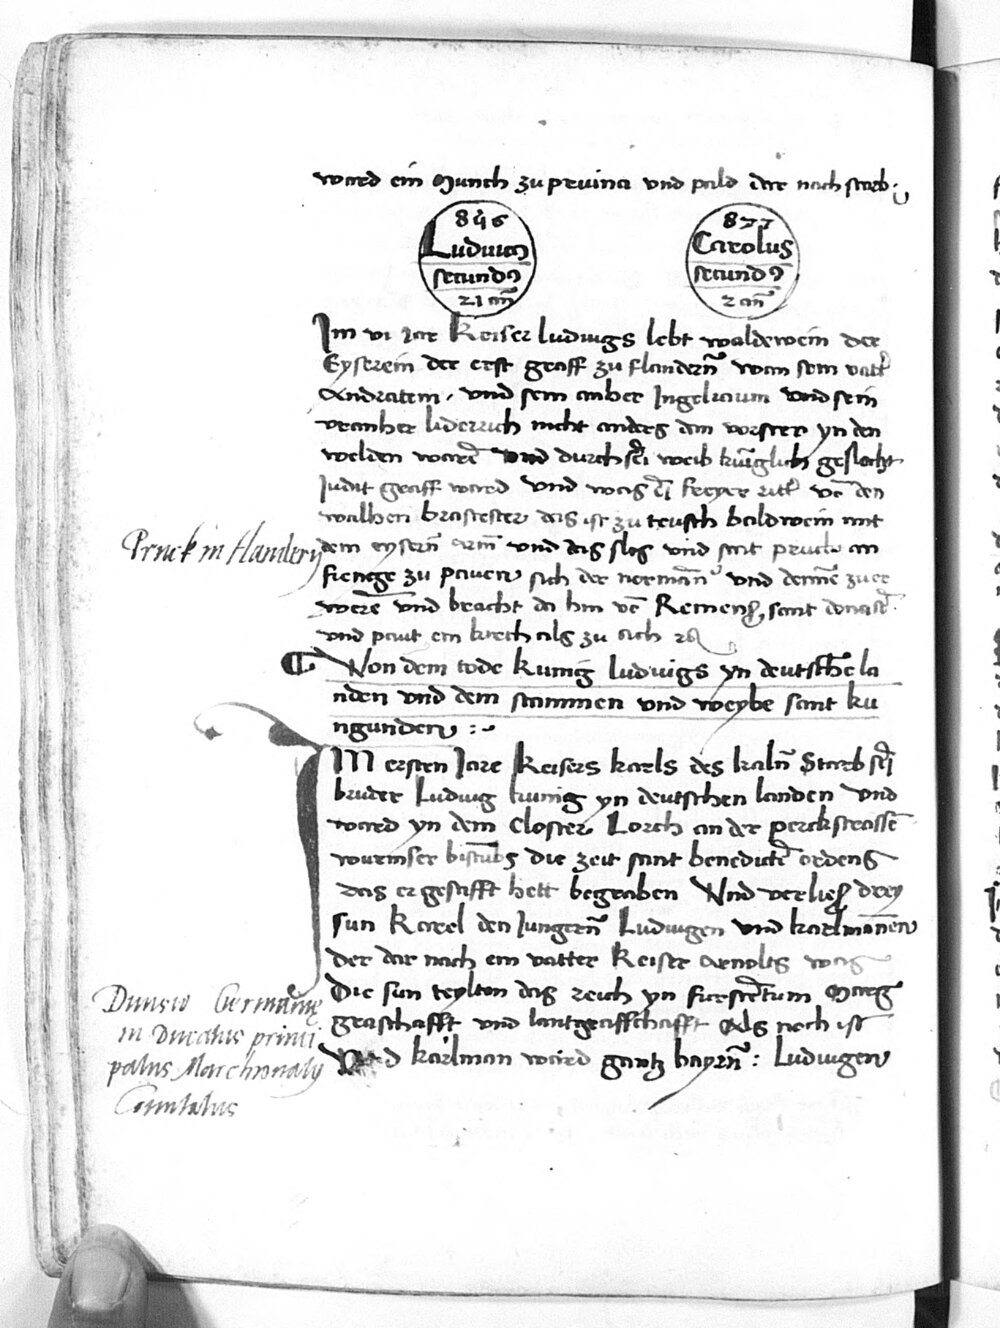 ward ein Munch zu pruina vnd pald dar noch starb
846
Ludwig
secund9
21 an̄
877
Carolus
secund9
2 an̄
Im vi Jar Keiser ludwigs lebt waldewein der
Eyserein der erst graff zu flandern̄ wan sein vatt'
Andratem, vnd sein anher Ingelraum vnd sein
vranher liderrich nicht anders dan vorster yn den
welden ware vnd durch sei weib kuniglich geslecht
Judit graff ward vnd was ei freyer ritt' vo den
walhen brasfester das ist zu teusch baldwein mit
dem eysern̄ arm vnd das slos vnd stat pruck an
fienge zu pawen sich der norman̄ vnd denne zu er
were vnd bracht da hin vo Remens sant donast
vnd pawt ein kirch als zu ach
Pruck in flandern
Von dem tode kunig ludwigs yn deutsche la
nden vnd dem stammen vnd weybe sant ku
ngunden :~
IM ersten Jare Keisers karls des kaln̄ Starb sei
bruder Ludwig kunig yn deutschen landen vnd
ward yn dem closter Lorch an der perckstrasse
wurmser bistubs die zeit sant benedicte ordens
das er gestifft hett begraben Vnd verlies drey
sun Karel den Jungern̄ Ludwigen vnd karlmanen
der dar nach ein vatter Keiser Arnolts was
Die sun teylten das reich yn furstetum Marg
graschafft vnd lantgraffschafft Als noch ist
Vnd karlman ward gantz bayrn̄ : Ludwigen
Diuisio Germanie
in Ducatus princi
patus Marchionatus
Comitatus